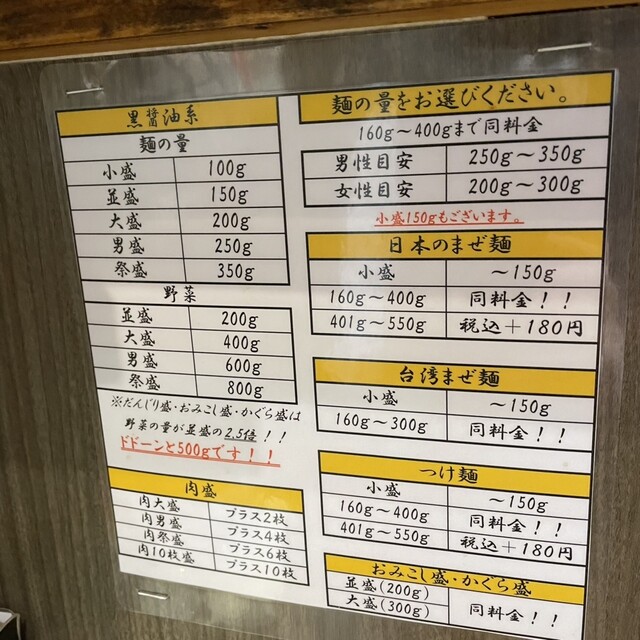 黒醤油系
麺の量
小盛 100g
並盛 150g
大盛 200g
男盛 250g
祭盛 350g
野菜
並盛 200g
大盛 400g
男盛 600g
祭盛 800g
※だんじり盛・おみこし盛・かぐら盛は
野菜の量が並盛の2.5倍!!
ドドーンと500gです!!
肉盛
肉大盛 プラス2枚
肉男盛 プラス4枚
肉祭盛 プラス6枚
肉10枚盛 プラス10枚
麺の量をお選びください。
160g~400gまで同料金
男性目安 250g~350g
女性目安 200g~300g
小盛150gもございます。
日本のまぜ麺
小盛 ~150g
160g~400g 同料金!!
401g~550g 税込+180円
台湾まぜ麺
小盛 ~150g
160g~300g 同料金!!
つけ麺
小盛 ~150g
160g~400g 同料金!!
401g~550g 税込+180円
おみこし盛・かぐら盛
並盛(200g) 同料金!!
大盛(300g)